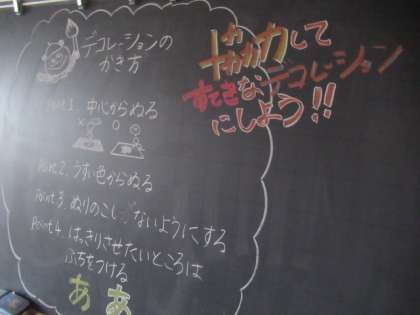 デコレーションの
かき方
Point1. 中心からぬる
Point2. うすい色からぬる
Point3. ぬりのこしがないようにする
Point4. はっきりさせたいところは
ふちをつける
あ あ
協力して
すてきなデコレーション
にしよう!!